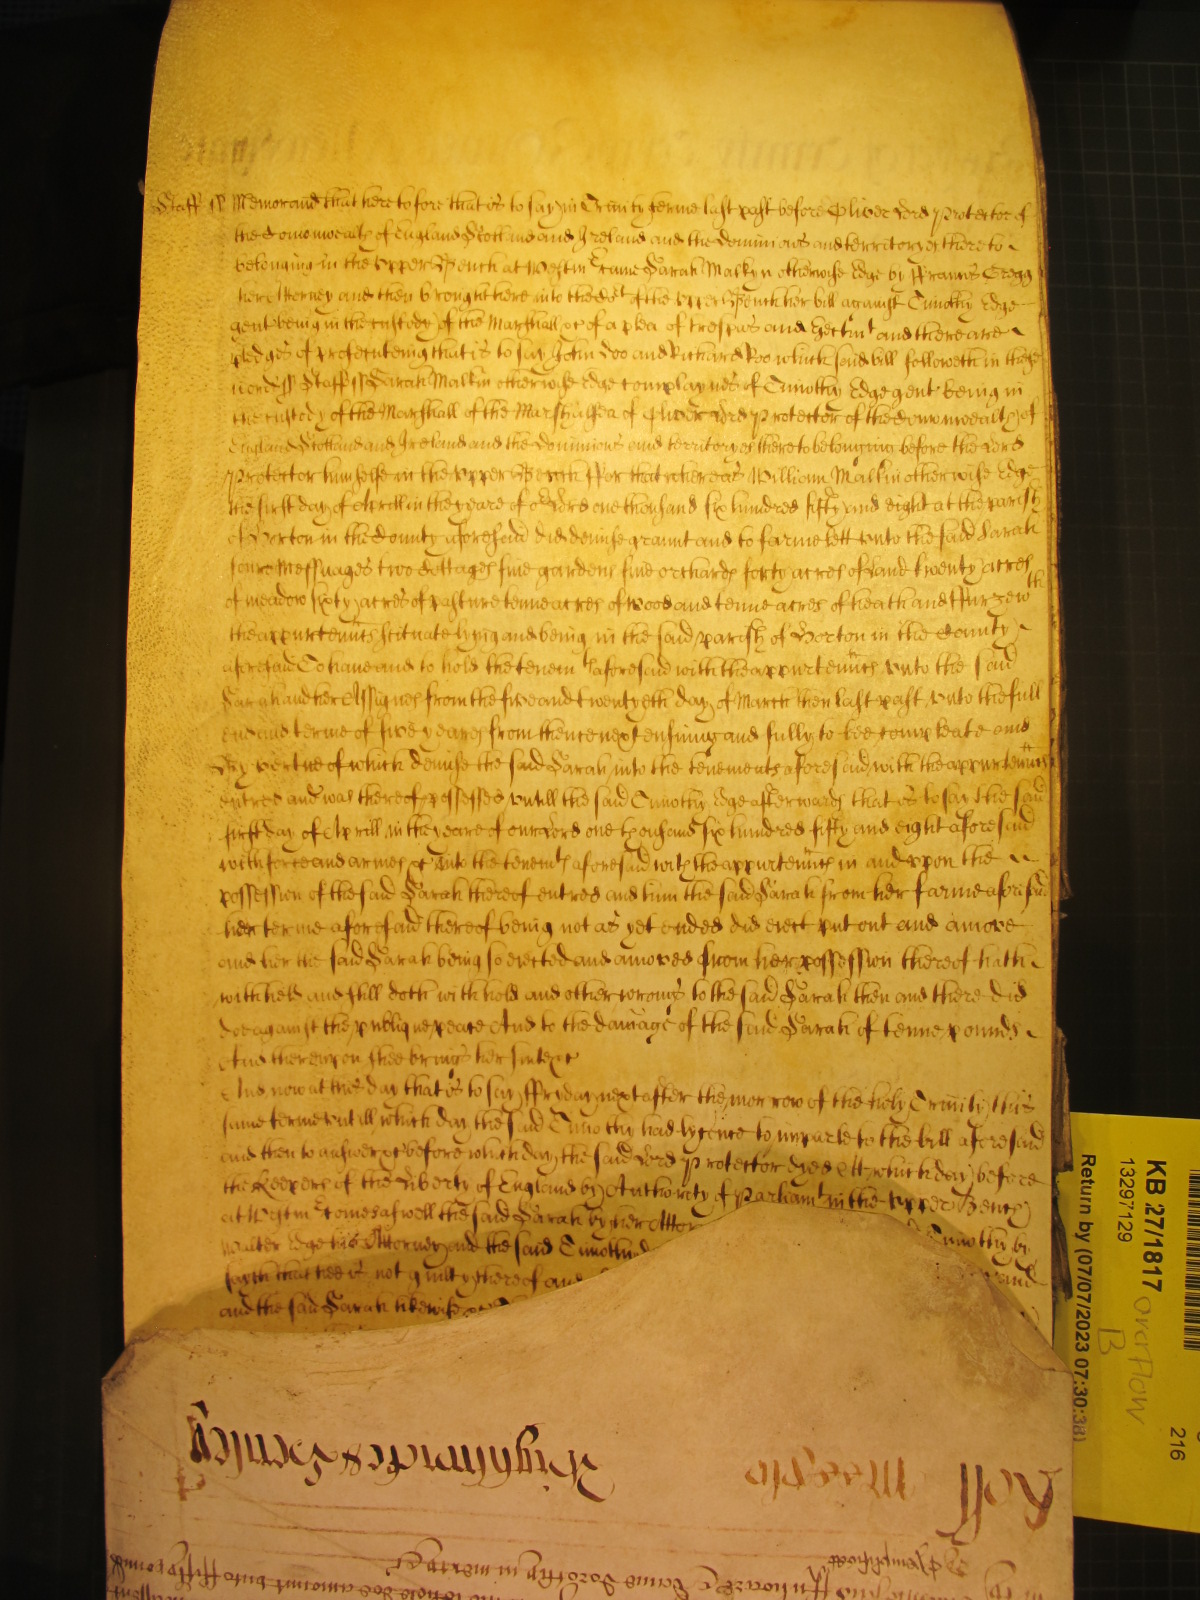 Staff ss Memorand that heretofore that is to say in Trinity terme last past before Oliver Lord Protector of
the Comonwealth of England Scotland and Ireland and the Dominions and territoryes thereto
belonging in the Upper Bench at Westm Came Sarah Malkyn otherwise Edge by Francis Cregg
her Attorney and then brought here into the Cort of the Upper Bench her bill against Timothy Edge
gent being in the custody of the Marshall &c of a plea of trespas and Ejectmt and there are
pledges of prosecuteing that is to say John Doo and Richard Roo which said bill followeth in these
words ss Staff ss Sarah Malkin otherwise Edge complaynes of Timothy Edge gent being in
the custody of the Marshall of the Marshalsea of Oliver Lord Protector of the Comonwealth of
England Scotland and Ireland and the Dominions and territoryes thereto belonging before the Lord
Protector himselfe in the Upper Bench For that whereas William Malkin otherwise Edge
the first day of Aprill in the yeare of or Lord one thousand six hundred fifty and eight at the parish
of Norton in the County aforesaid did demise graunt and to farme lett unto the said Sarah
foure Messuages two Cottages five gardens five orchards forty acres of Land twenty acres
of meadow sixty acres of pasture tenne acres of Wood and tenne acres of heath and Furze wth
the appurtennts scituate lying and being in the said parish of Norton in the County
aforesaid To have and to hold the tenemts aforesaid with the appurtennces unto the said
Sarah and her Assignes from the five and twentyeth day of March then last past unto the full
end and terme of five yeares from thence next ensuing and fully to bee compleate and
By vertue of which demise the said Sarah into the tenements aforesaid with the appurtennces
entred and was thereof possessed untill the said Timothy Edge afterwards that is to say the said
first day of Aprill in the yeare of our Lord one thousand six hundred fifty and eight aforesaid
with force and armes &c into the tenemts aforesaid with the appurtennces in and uppon the
possession of the said Sarah thereof entred and him the said Sarah from her farme aforesaid
her terme aforesaid thereof being not as yet ended did eject put out and amove
and her the said Sarah being so ejected and amoved from her possession thereof hath
withheld and still doth withhold and other wrongs to the said Sarah then and there did
doe against the publique peace And to the damage of the said Sarah of tenne pounds
And thereupon shee brings her suite &c
And now at this day that is to say Fryday next after the morrow of the holy Trinity this
same terme untill which day the said Timothy had lycence to imparle to the bill aforesaid
and then to answer &c before which day the said Lord Protector dyed At which day before
the Keepers of the Liberty of England by Authority of Parliamt in the Upper Bench
at Westm comes aswell the said Sarah by her Attor Timothy by
Walter Edge his Attorney and the said Timothy
sayth that hee is not guilty thereof and and
and the said Sarah likewise
KB 27/1817
13297129
Return by (07/07/2023 07:30:38)
overflow
B
216
Roll
Wightwicke & Henley